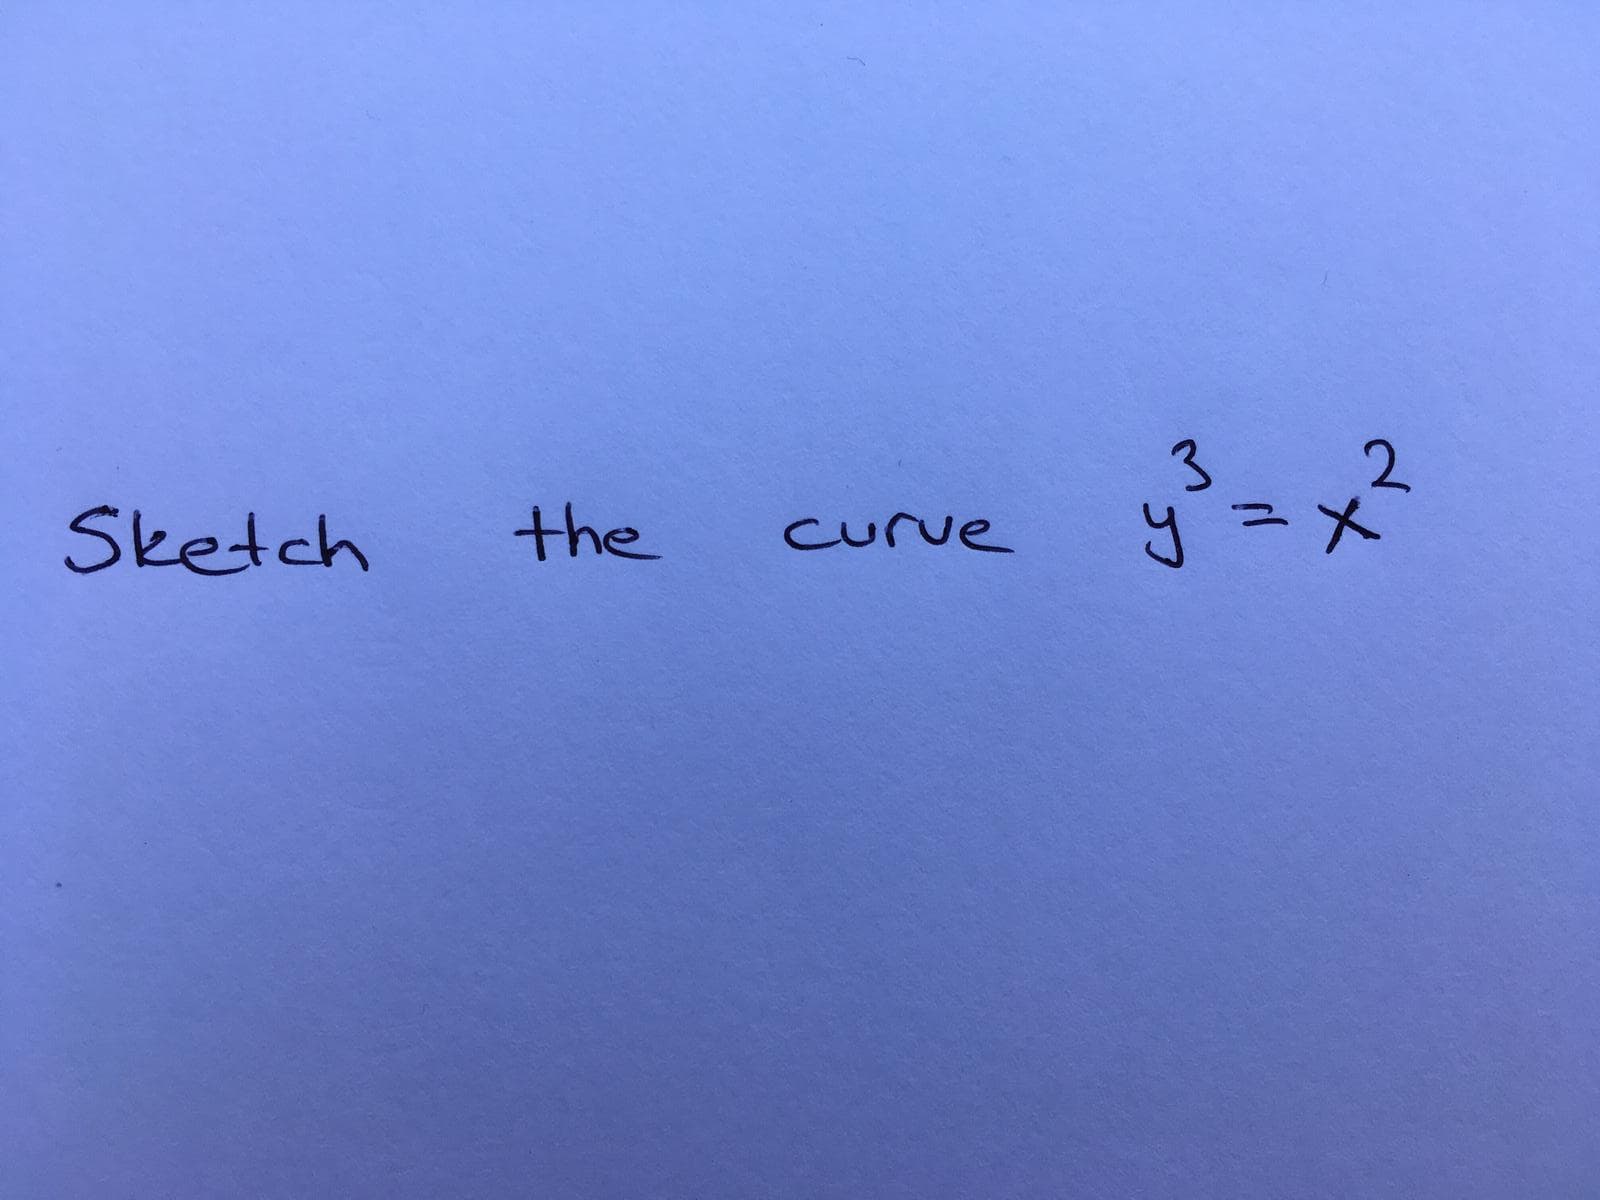 Sketch the curve y³ = x²